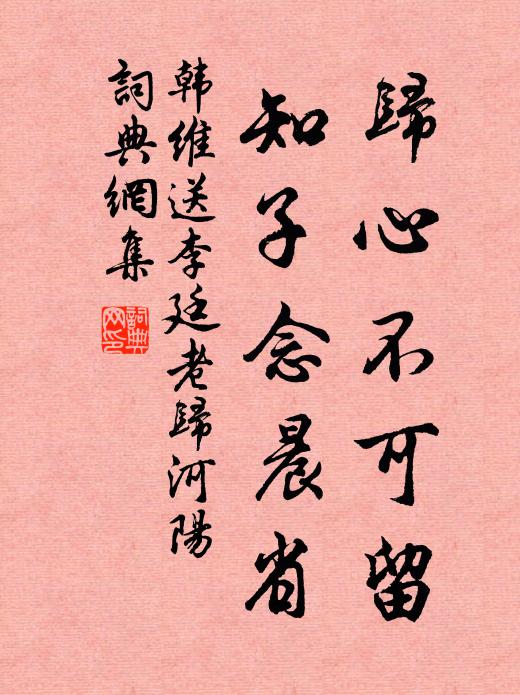 歸心不可留
知子念晨省
韩維送李廷老歸河陽
詞典網集
詞典网印